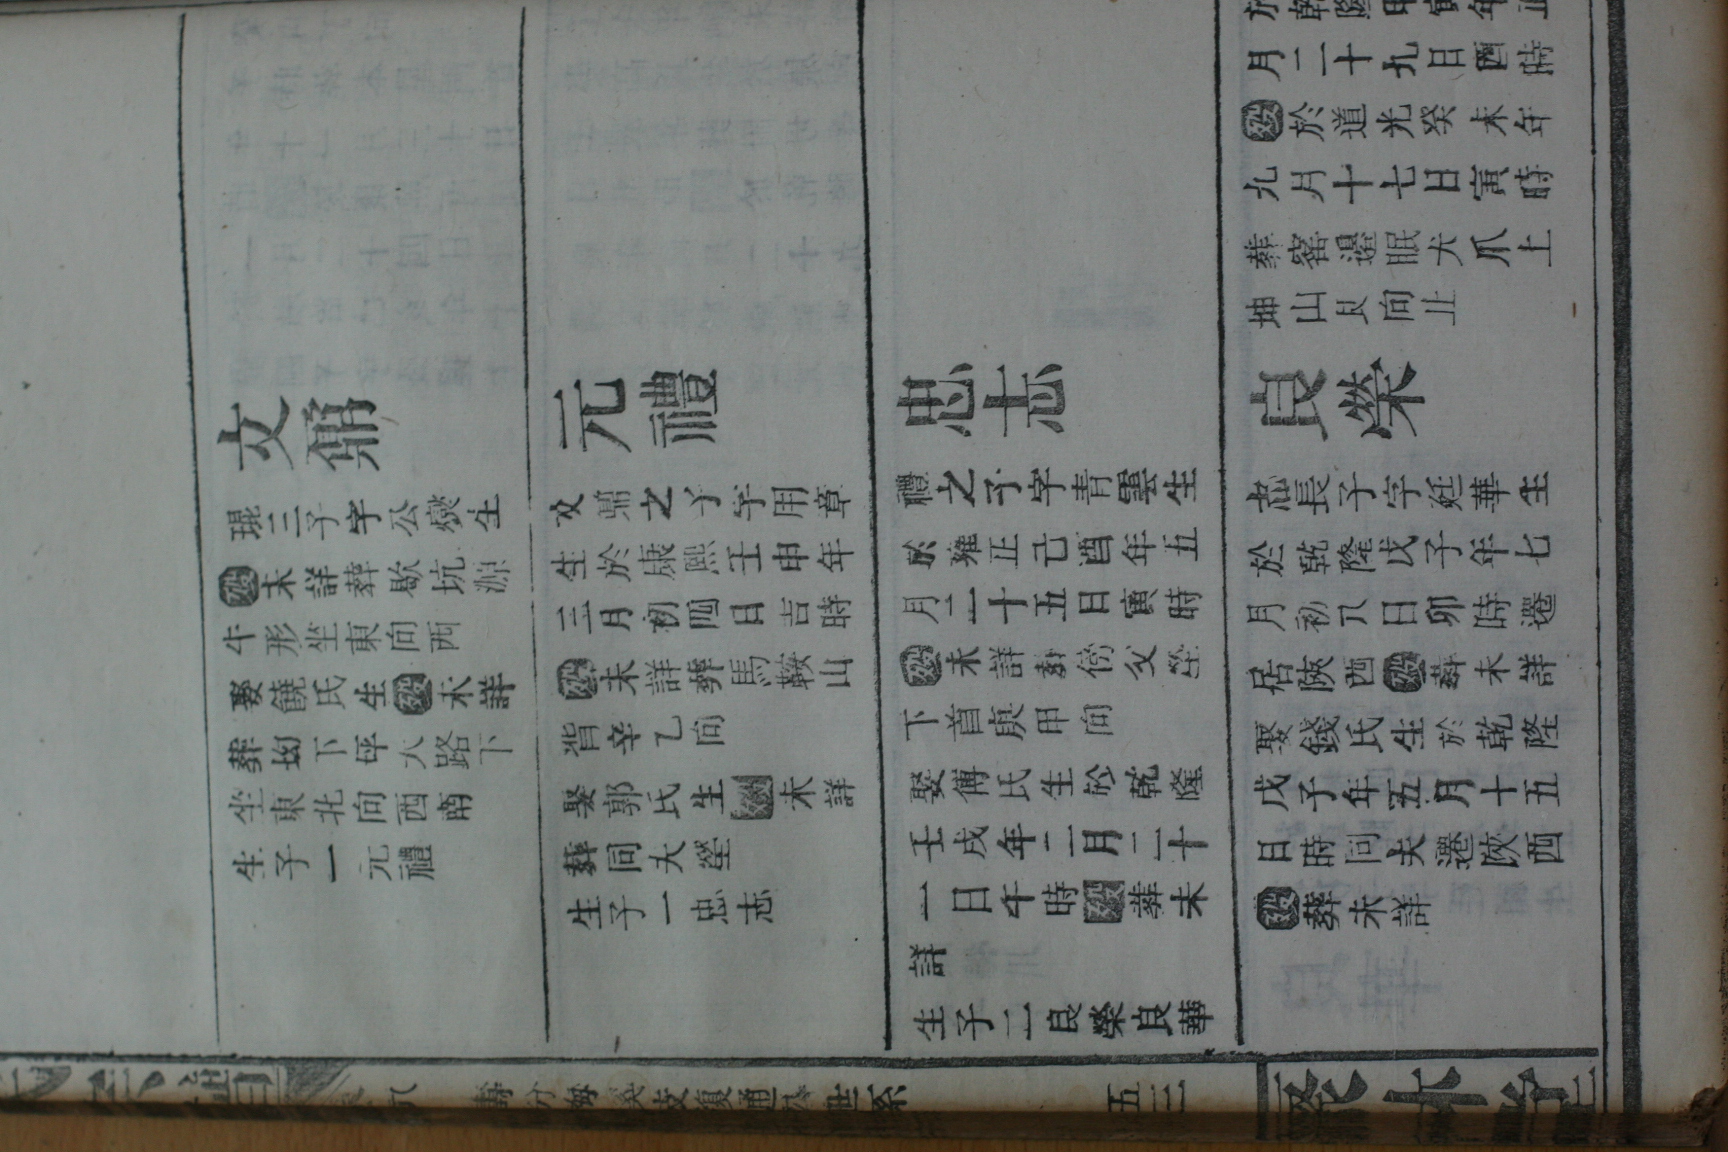 於乾隆甲寅年正
月二十九日酉時
殁於道光癸未年
九月十七日寅時
葬窑邊眠犬爪上
坤山艮向止
文鼐
琨三子字公燮生
殁未詳葬歇坑源
牛形坐東向西
娶饒氏生殁未詳
葬坳下坪大路下
坐東北向西南
生子一元禮
元禮
文鼐之子字用章
生於康熙壬申年
三月初四日吉時
殁未詳葬馬鞍山
背辛乙向
娶郭氏生殁未詳
葬同夫塋
生子一忠志
忠志
禮之子字青雲生
於雍正己酉年五
月二十五日寅時
殁未詳葬傍父塋
下首庚甲向
娶傅氏生於乾隆
壬戌年二月二十
一日午時殁葬未
詳
生子二良榮良華
良榮
志長子字廷華生
於乾隆戊子年七
月初八日卯時遷
居陝西殁葬未詳
娶錢氏生於乾隆
戊子年五月十五
日時同夫遷陝西
殁葬未詳
氏宗譜
八
支復通公世系
五三